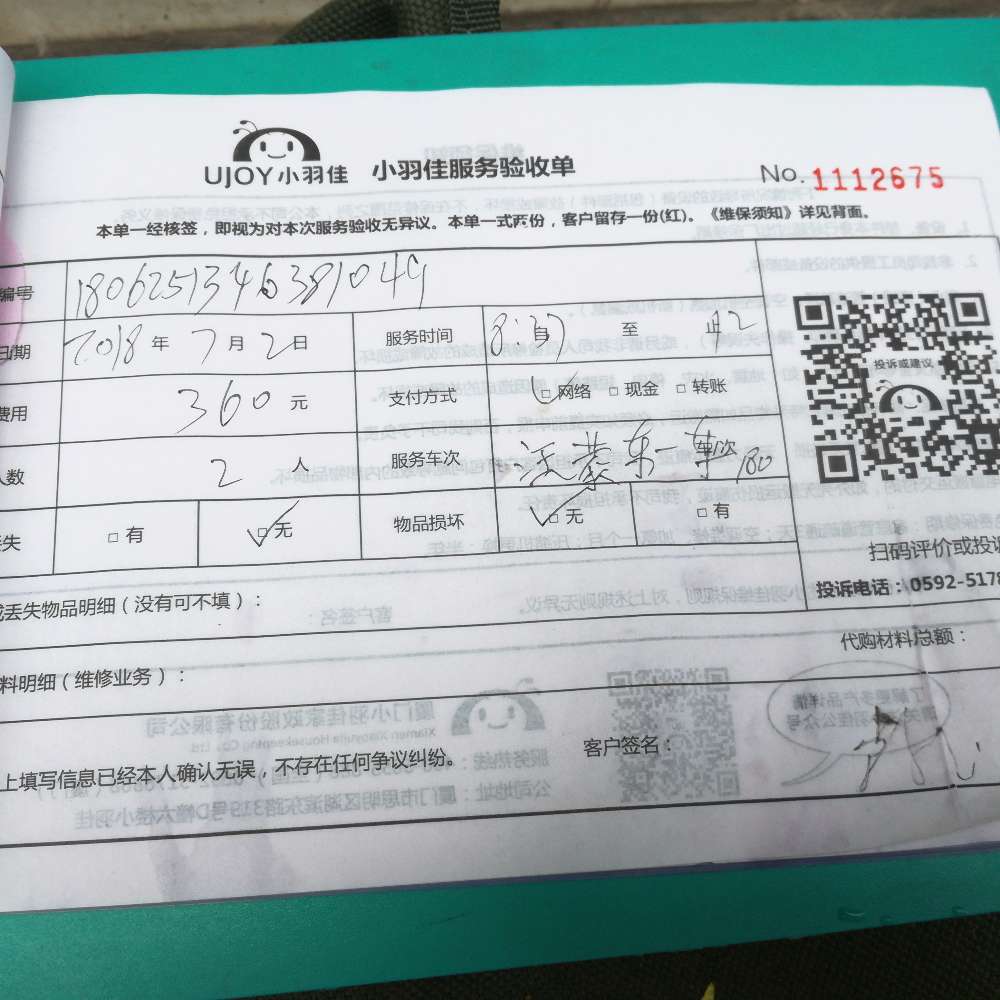 UJOY小羽佳 小羽佳服务验收单 No.1112675
本单一经核签，即视为对本次服务验收无异议。本单一式两份，客户留存一份(红)。《维保须知》详见背面。
编号 1806251346381049
日期 2018 年 7 月 2 日 服务时间 8:30 自 至 12 止
费用 360 元 支付方式 □网络 □现金 □转账
人数 2 人 服务车次 车次
丢失 □有 □无 物品损坏 □无 □有
投诉或建议
扫码评价或投诉
投诉电话：0592-5178
或丢失物品明细（没有可不填）：
代购材料总额：
料明细（维修业务）：
上填写信息已经本人确认无误，不存在任何争议纠纷。 客户签名：